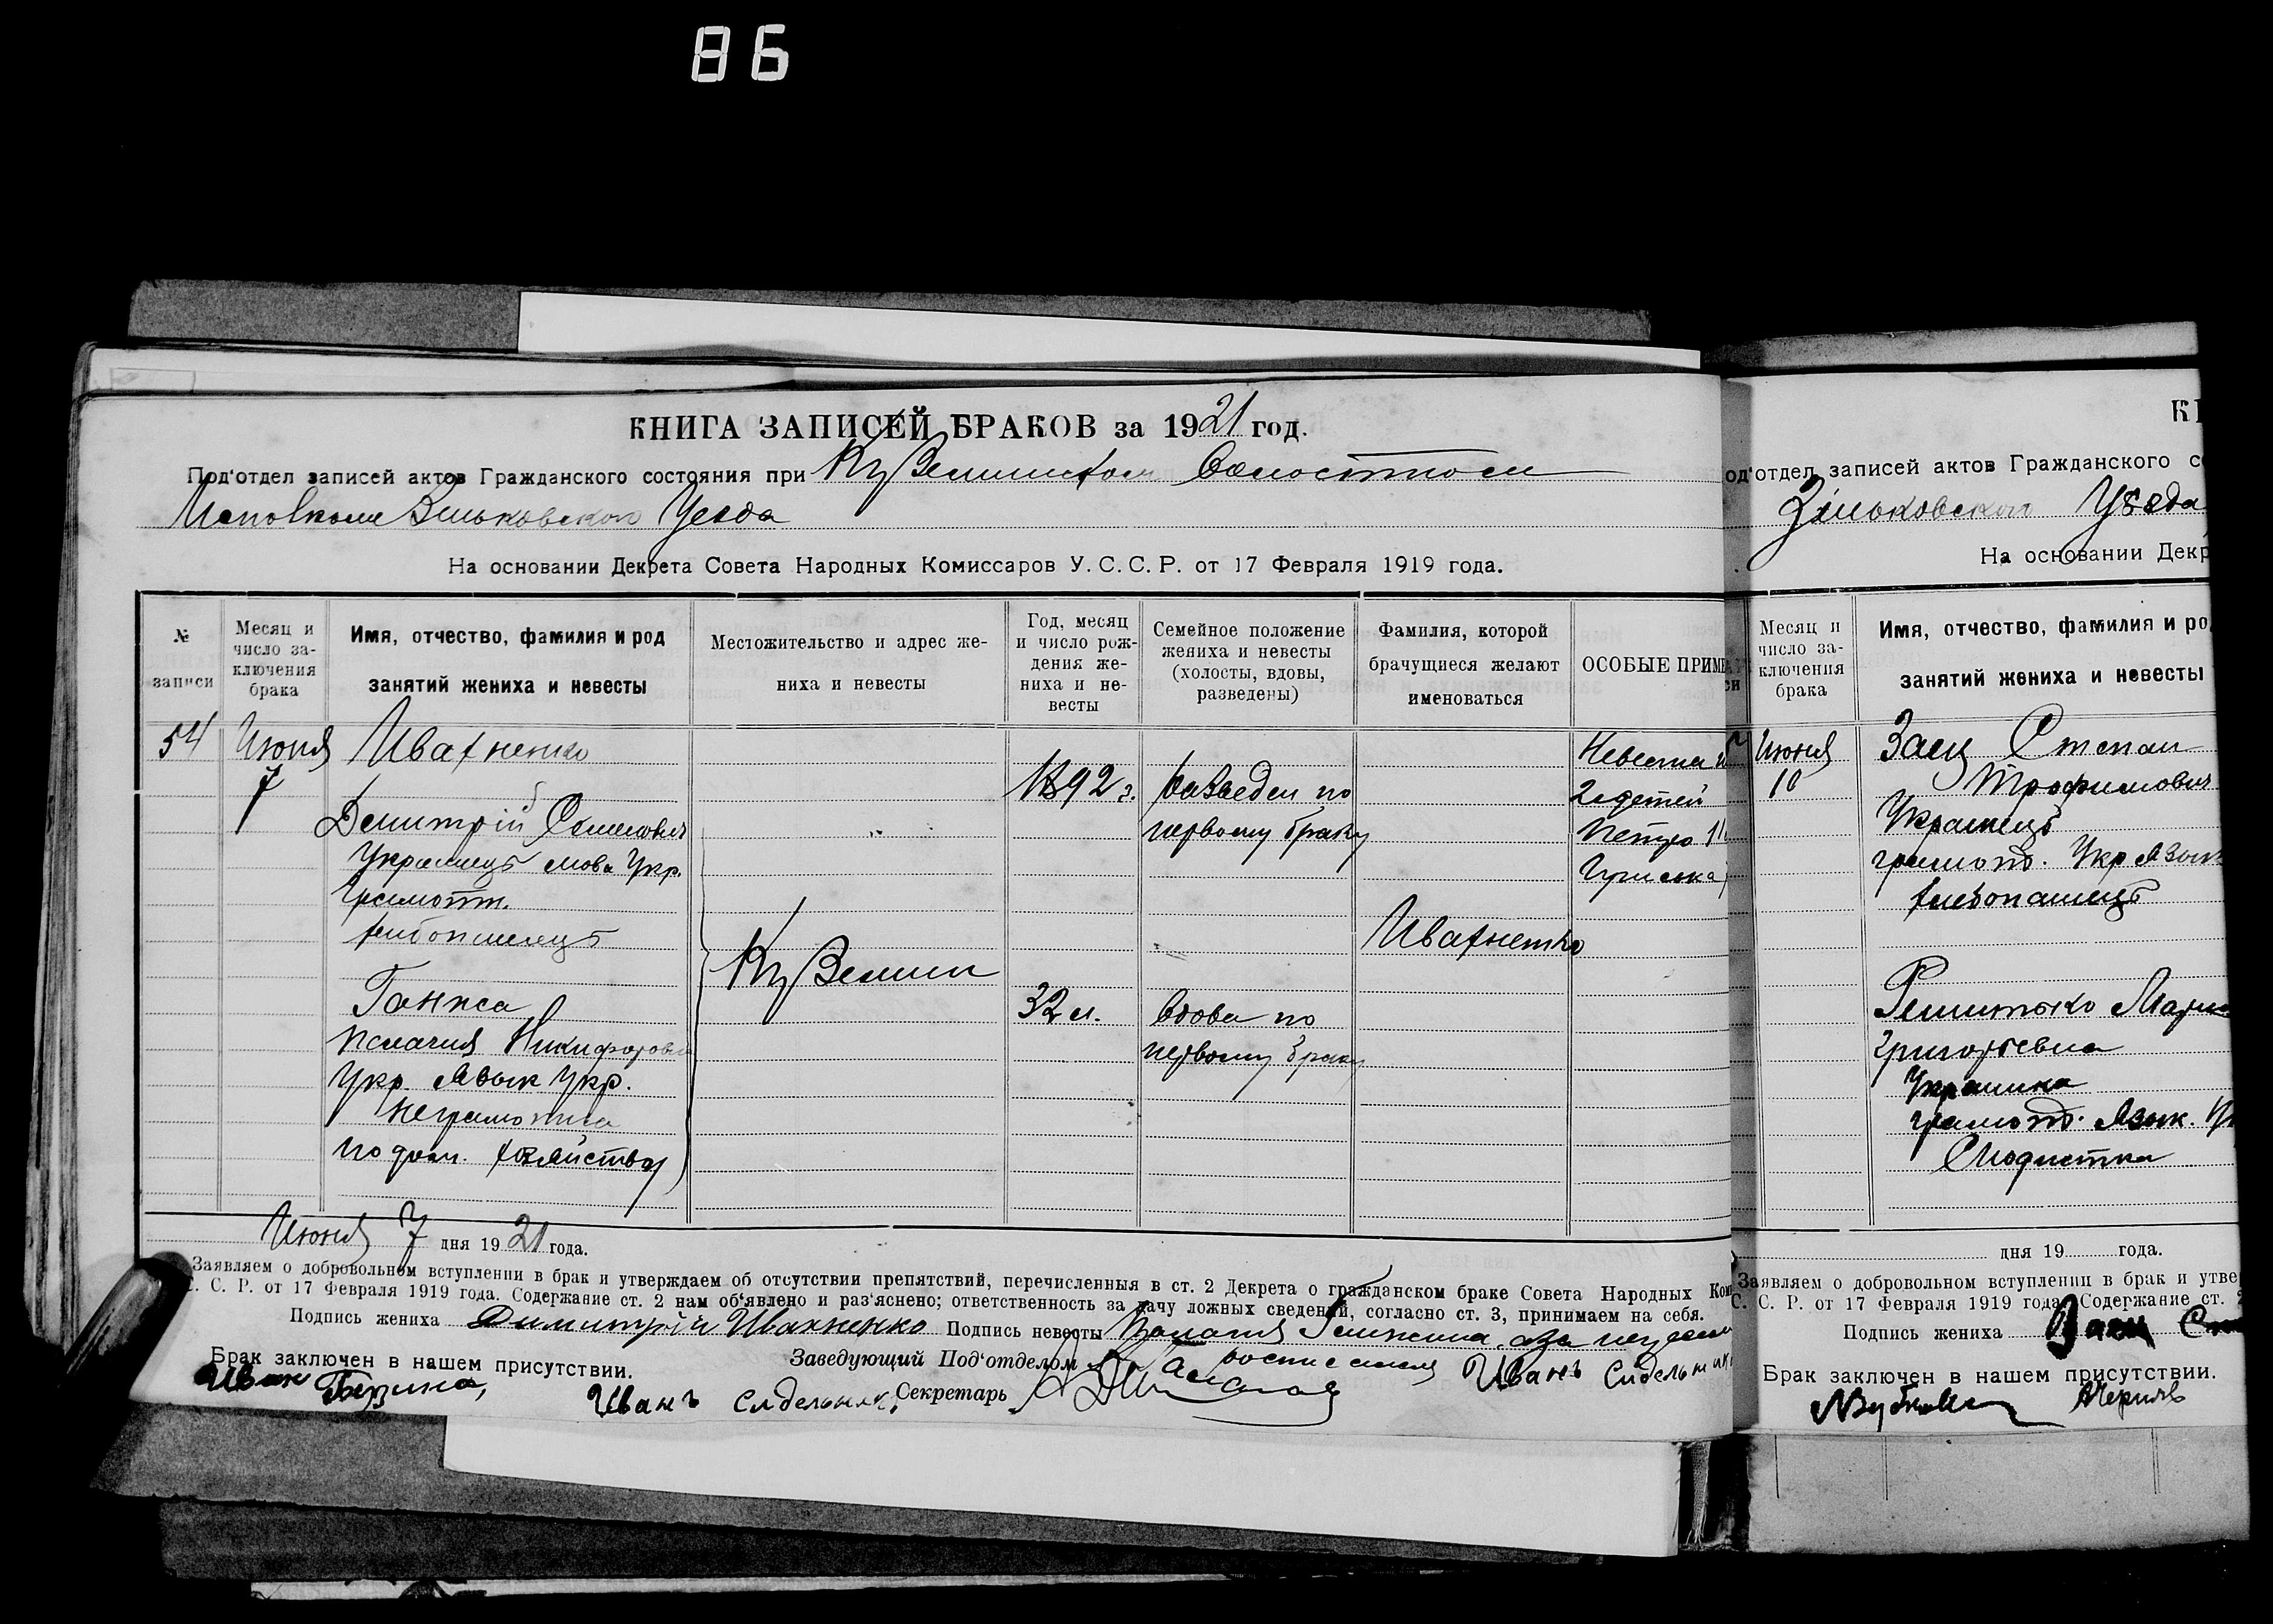 86
КНИГА ЗАПИСЕЙ БРАКОВ за 1921 год.
Под'отдел записей актов Гражданского состояния при Куземинском Волостном
Исполкоме Зеньковского Уезда
На основании Декрета Совета Народных Комиссаров У. С. С. Р. от 17 Февраля 1919 года.
№ записи
Месяц и число заключения брака
Имя, отчество, фамилия и род занятий жениха и невесты
Местожительство и адрес жениха и невесты
Год, месяц и число рождения жениха и невесты
Семейное положение жениха и невесты (холосты, вдовы, разведены)
Фамилия, которой брачущиеся желают именоваться
ОСОБЫЕ ПРИМЕ
54
Июня
7
Ивахненко
Демитрій
Украинець мова Укр.
Грамотн.
хлибопашець
1892 г.
Разведен по
первому браку
Невеста
2 детей
Петро
Гриська
Ивахненко
Куземин
Ганжа
Пелагия Никифоровна
Укр. Язык Укр.
неграмотна
по дом. хозяйству
32 л.
Вдова по
первому браку
Июня 7 дня 1921 года.
Заявляем о добровольном вступлении в брак и утверждаем об отсутствии препятствий, перечисленныя в ст. 2 Декрета о гражданском браке Совета Народных Ком
С. С. Р. от 17 Февраля 1919 года. Содержание ст. 2 нам об'явлено и раз'яснено; ответственность за дачу ложных сведений, согласно ст. 3, принимаем на себя.
Подпись жениха Димитрій Ивахненко Подпись невесты
Брак заключен в нашем присутствии.
Заведующий Под'отделом
Иванъ Сидельник
Иван
Иванъ Сидельник
Секретарь
КН
од'отдел записей актов Гражданского со
Зіньковского Уѣзда
На основании Декр
Месяц и число заключения брака
Имя, отчество, фамилия и ро
занятий жениха и невесты
Июня
10
Заец Степан
Трофимович
Украинець
грамотн. Укр Язык
хлебопашець
Григорьевна
Украинка
грамотн. Язык. Ук
Модистка
дня 19 года.
Заявляем о добровольном вступлении в брак и утве
С. С. Р. от 17 Февраля 1919 года. Содержание ст. 2
Подпись жениха Заец
Брак заключен в нашем присутствии.